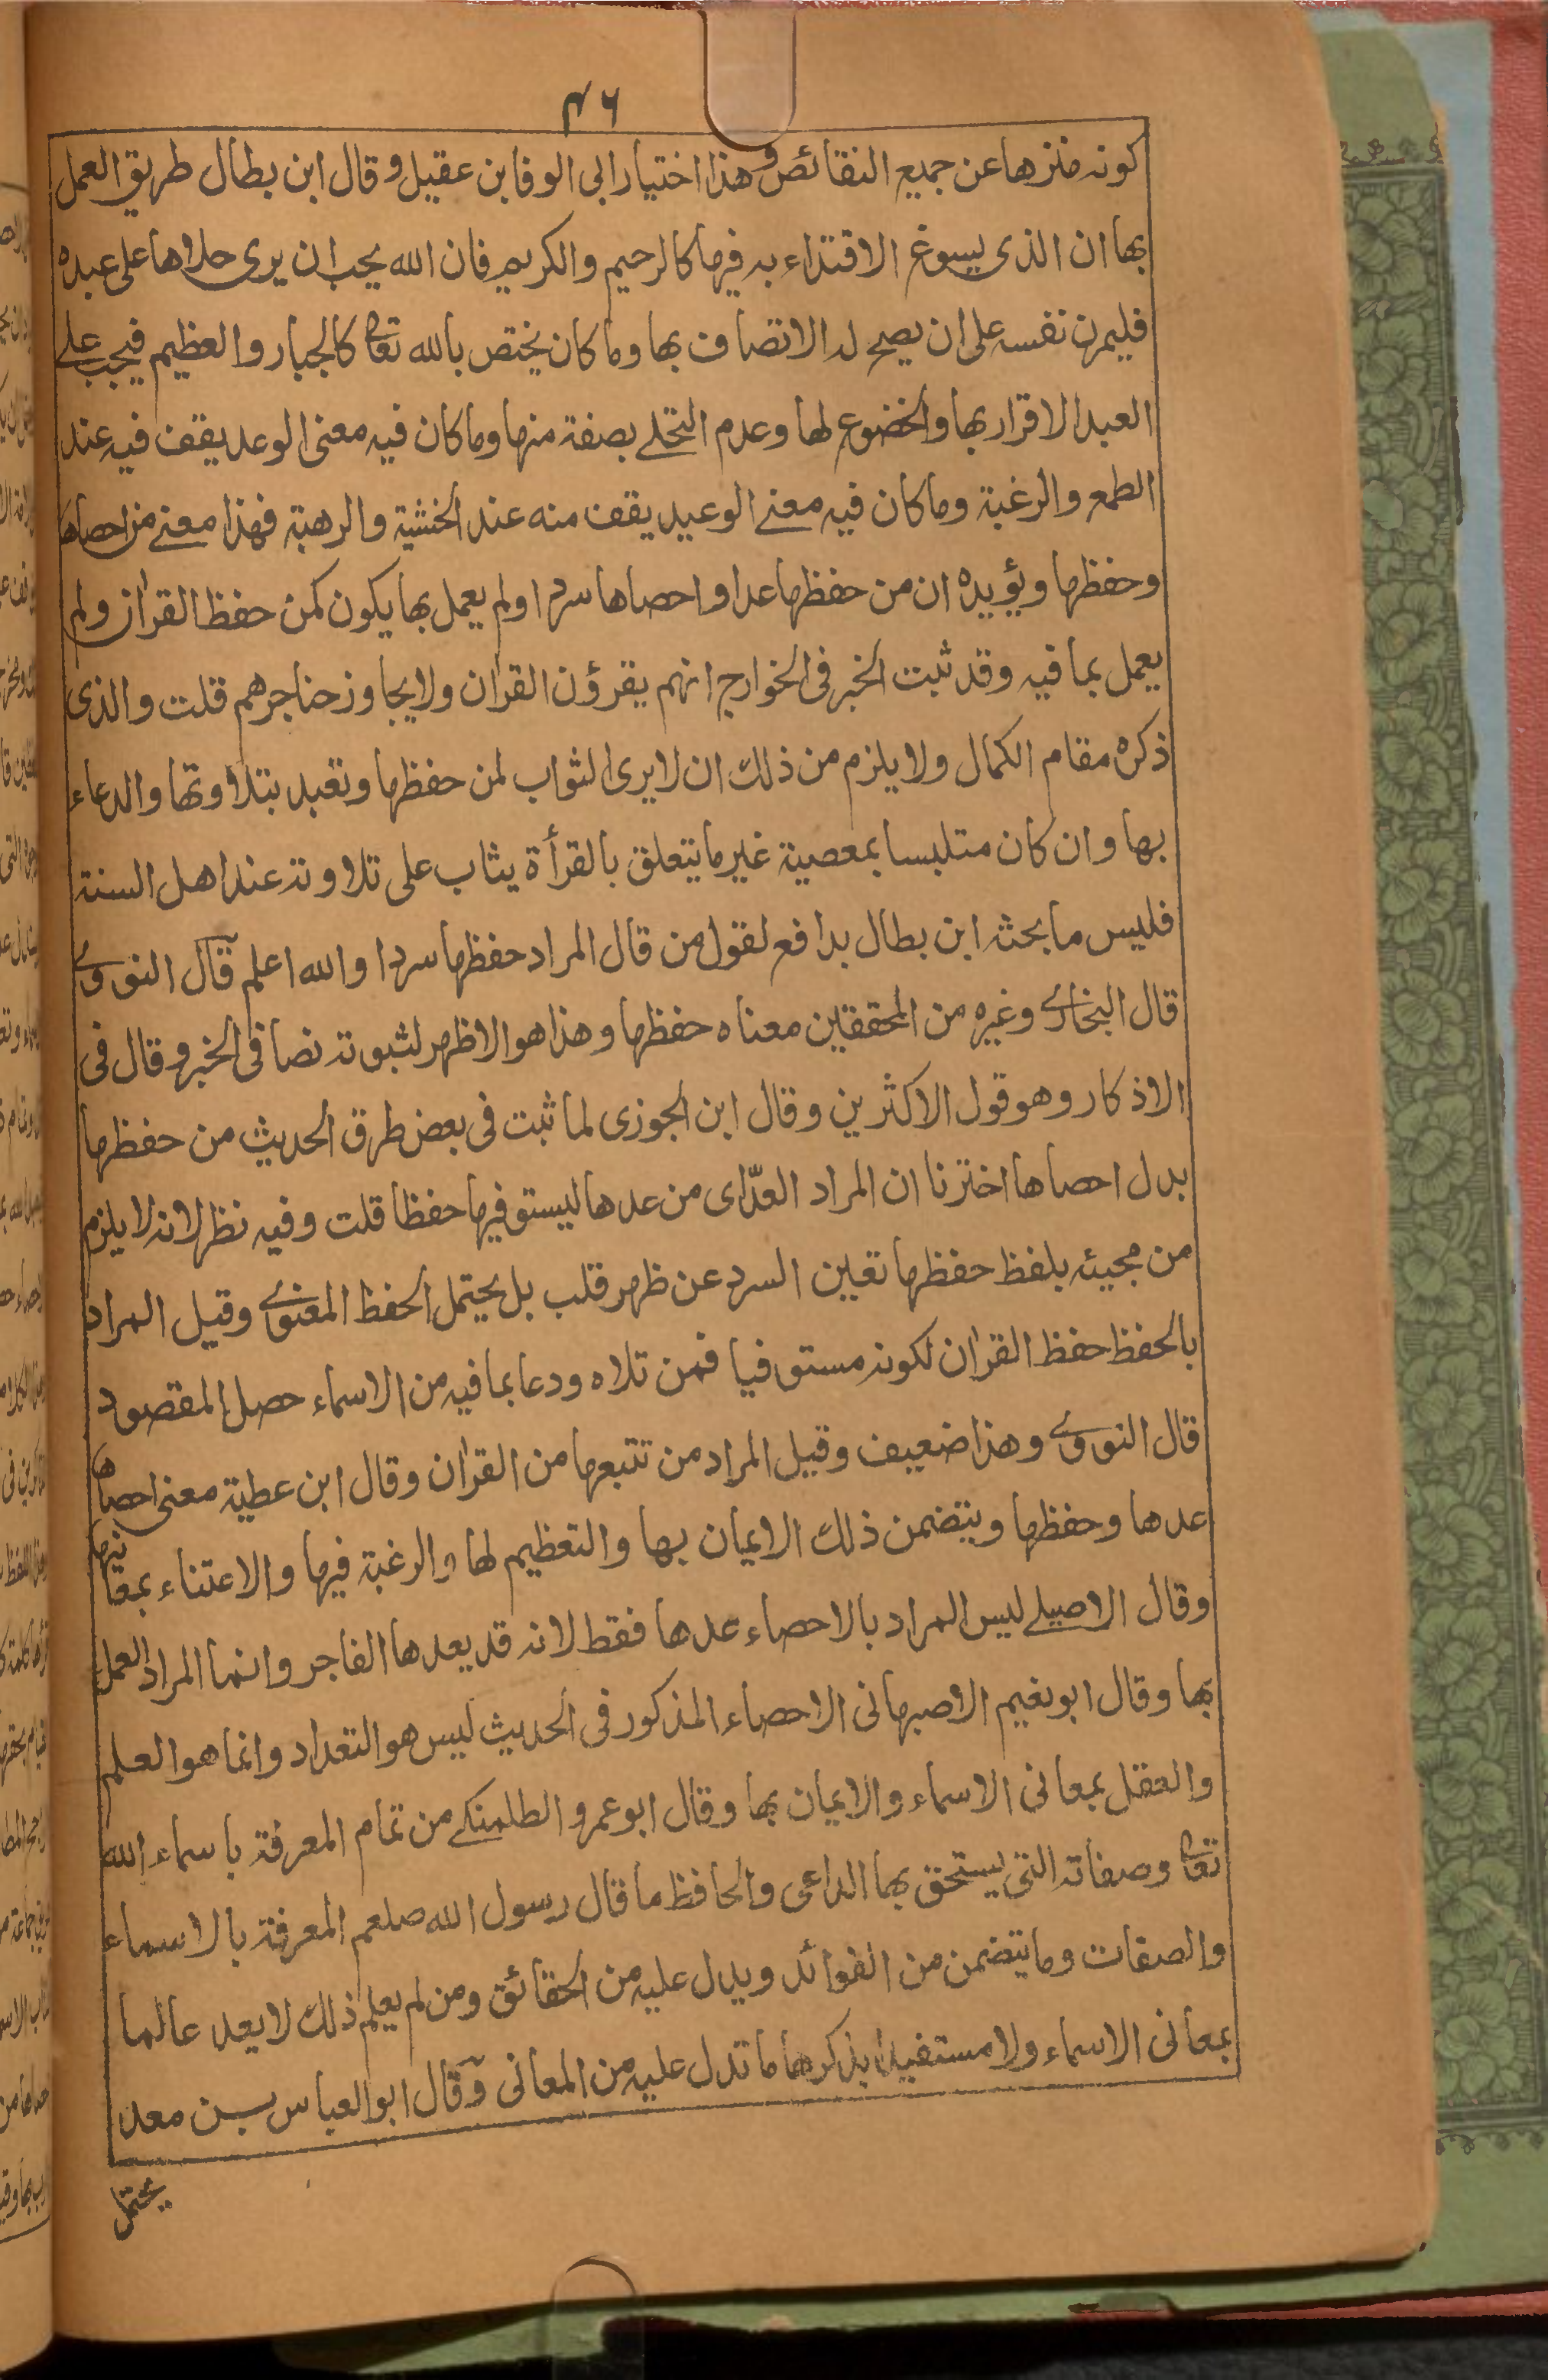 ٤٦
كونه منزها عن جميع النقائص وهذا اختيار ابى الوفا بن عقيل وقال ابن بطال طريق العمل
بها ان الذى ليسوغ الاقتداء به فيها كالرحيم والكريم فان الله يحب ان يرى حلاها على عبده
فليمرن نفسه على ان يصح له الاتصاف بها وما كان يختص بالله تعا كالجبار والعظيم فيجب على
العبد الاقرار بها والخضوع لها وعدم التحلے بصفة منها وما كان فيه معنى الوعد يقف فيه عند
الطمع والرغبة وما كان فيه معنے الوعيد يقف منه عند الخشية والرهبة فهذا معنے من احصاها
وحفظها ويؤيده ان من حفظها عدا واحصاها سردا ولم يعمل بها يكون كمن حفظ القران ولم
يعمل بما فيه وقد ثبت الخبر فى الخوارج انهم يقرؤن القران ولا يجاوز حناجرهم قلت والذى
ذكره مقام الكمال ولا يلزم من ذلك ان لا يرى الثواب لمن حفظها وتعبد بتلاوتها والدعاء
بها وان كان متلبسا بمعصية غير ما يتعلق بالقرأة يثاب على تلاوته عند اهل السنة
فليس ما بحثه ابن بطال بدافع لقول من قال المراد حفظها سردا والله اعلم قال النووے
قال البخارے وغيره من المحققين معناه حفظها وهذا هو الاظهر لثبوته نصا فى الخبر وقال فى
الاذكار وهو قول الاكثرين وقال ابن الجوزى لما ثبت فى بعض طرق الحديث من حفظها
بدل احصاها اخترنا ان المراد العدّ اى من عدها ليستوفيها حفظا قلت وفيه نظر لانه لا يلزم
من مجيئه بلفظ حفظها تعين السرد عن ظهر قلب بل يحتمل الحفظ المعنوے وقيل المراد
بالحفظ حفظ القران لكونه مستوفيا فمن تلاه ودعا بما فيه من الاسماء حصل المقصود
قال النووے وهذا ضعيف وقيل المراد من تتبعها من القران وقال ابن عطية معنى احصاها
عدها وحفظها ويتضمن ذلك الايمان بها والتعظيم لها والرغبة فيها والاعتناء بمعانيها
وقال الاصيلے ليس المراد بالاحصاء عدها فقط لانه قد يعدها الفاجر وانما المراد العمل
بها وقال ابو نعيم الاصبهانى الاحصاء المذكور فى الحديث ليس هو التعداد وانما هو العلم
والعقل بمعانى الاسماء والايمان بها وقال ابو عمرو الطلمنكے من تمام المعرفة باسماء الله
تعا وصفاته التى يستحق بها الداعى والحافظ ما قال رسول الله صلعم المعرفة بالاسماء
والصفات وما يتضمن من الفوائد ويدل عليه من الحقائق ومن لم يعلم ذلك لا يعد عالما
بمعانى الاسماء ولا مستفيدا بذكرها ما تدل عليه من المعانى وقال ابو العباس بن معد
يحتمل